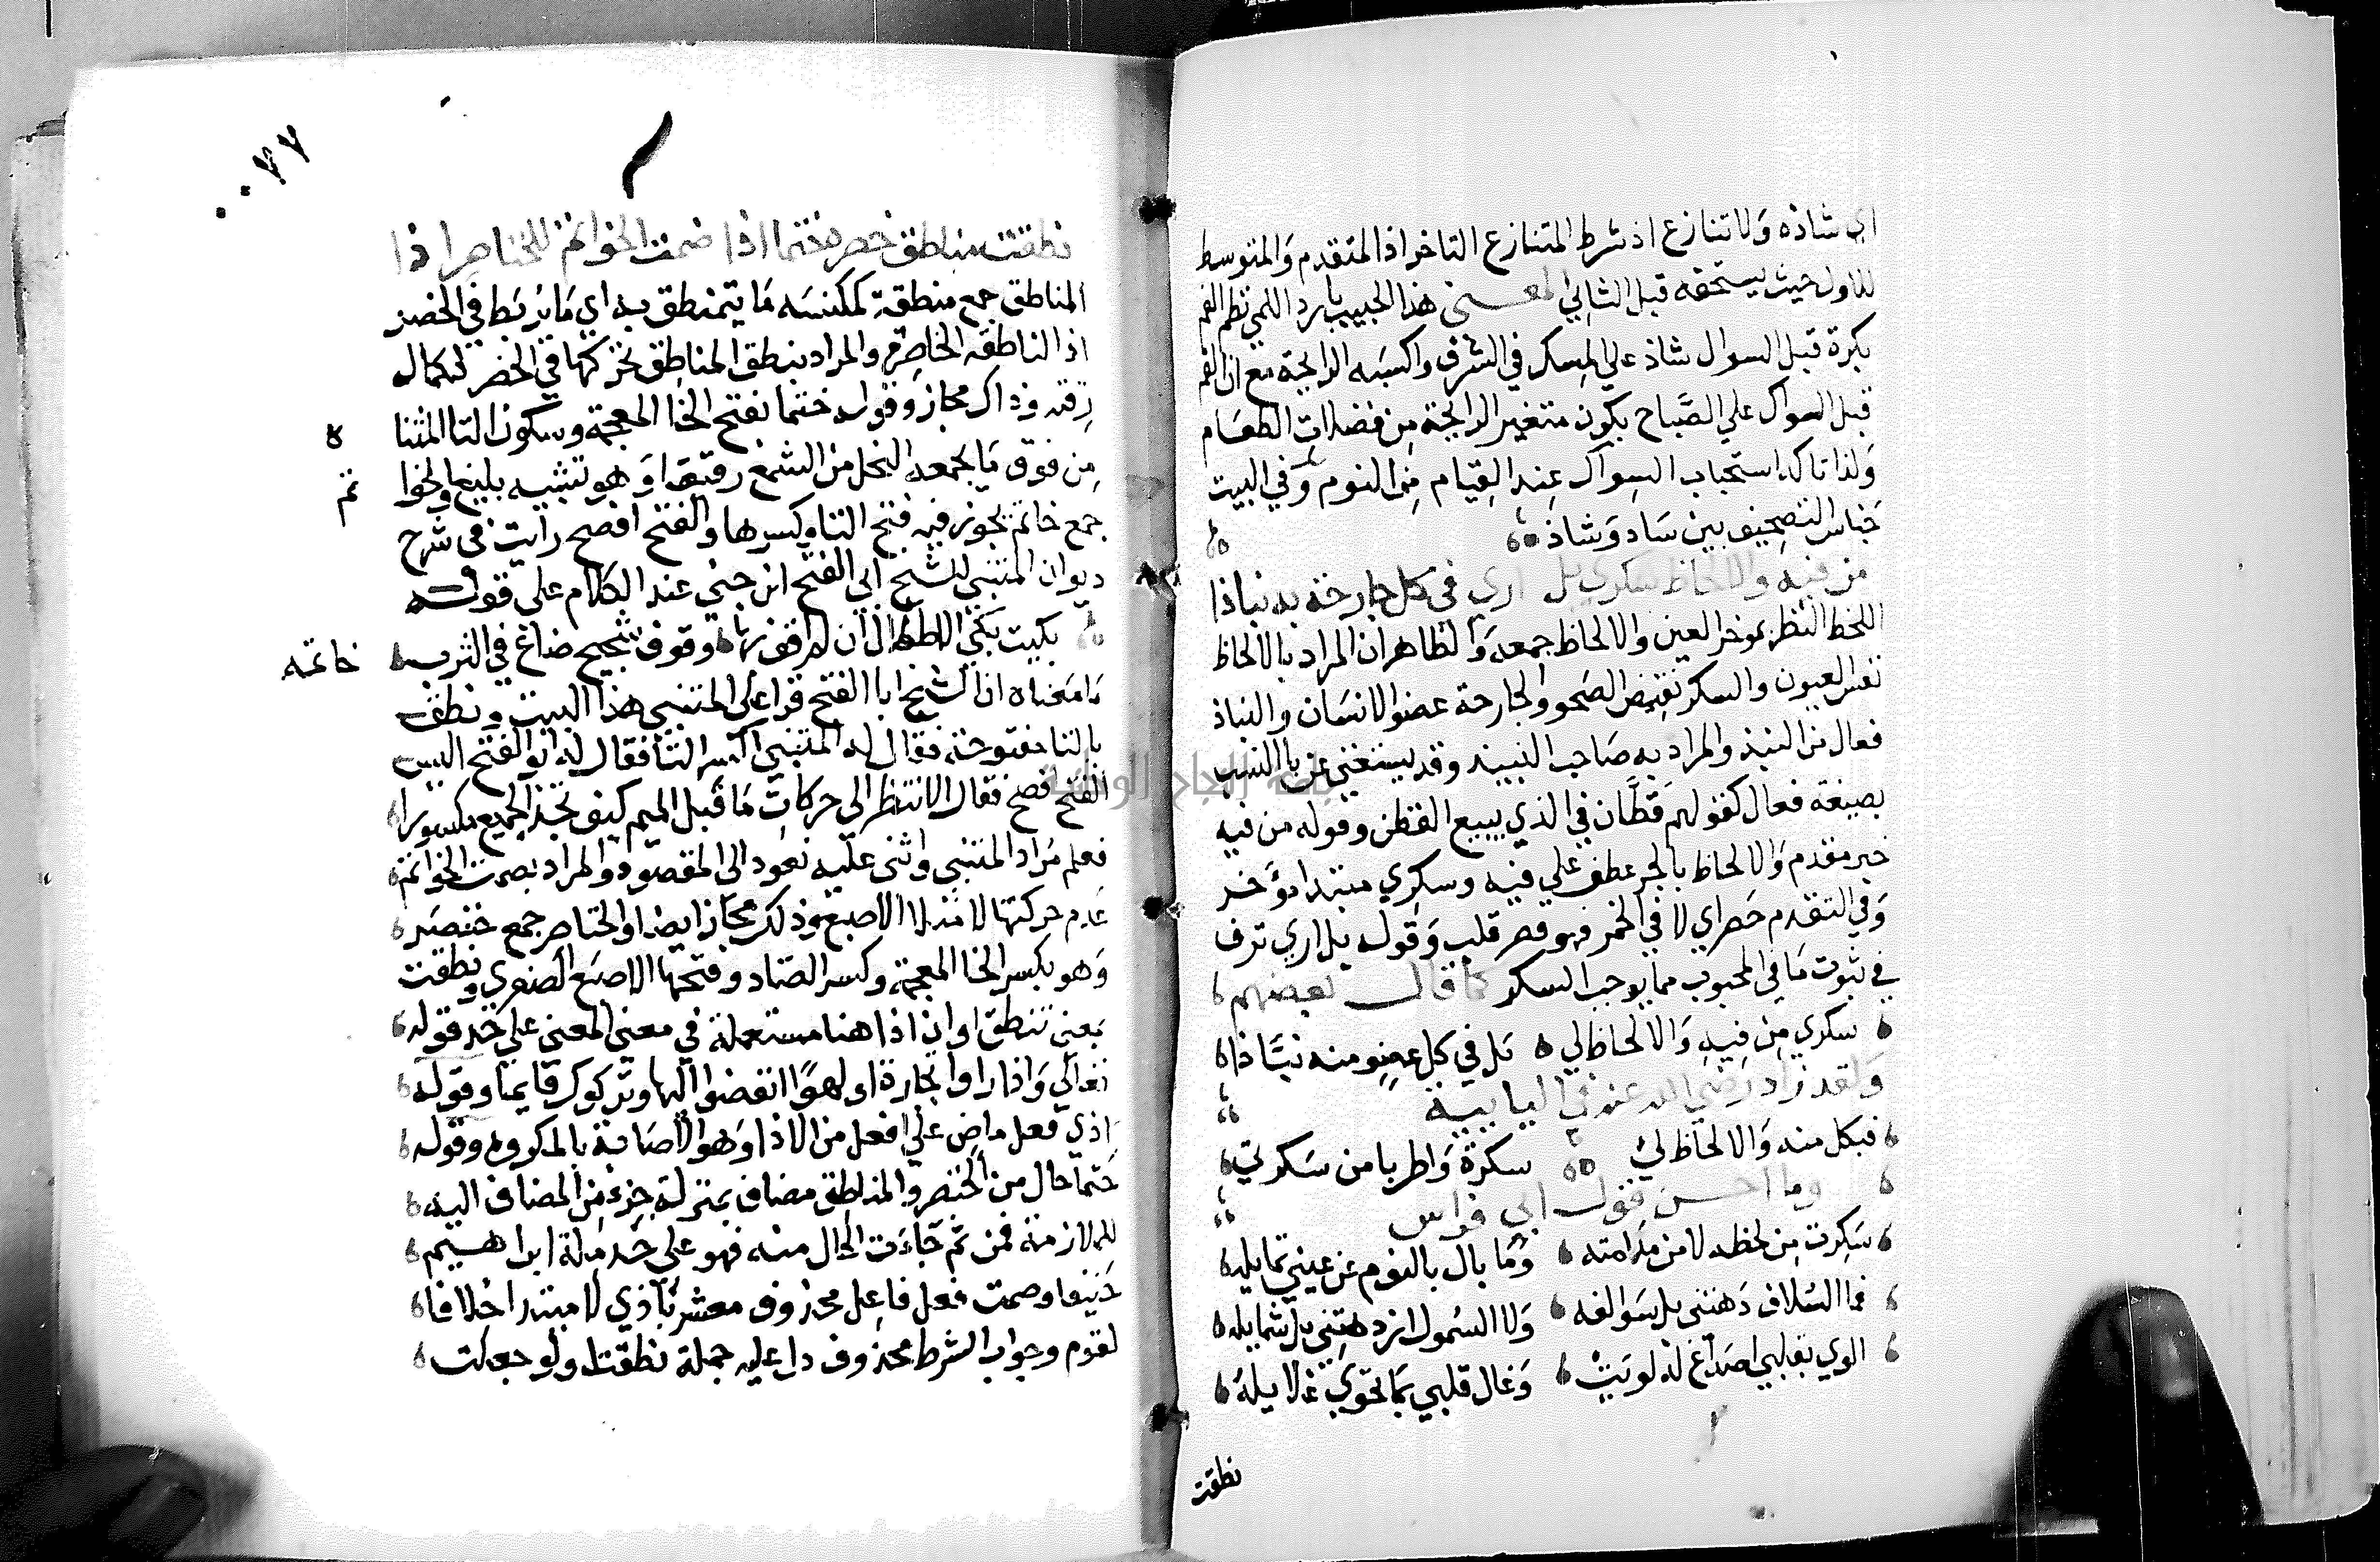 اي شاذه وَلا تنازع اذ شرط المتنازع التاخر اذا المتقدم وَالمتوسط
للاول حيث يستحقه قبل الثاني المعنى هذا الحبيب بارد اللمى نظم الفم
بكرة قبل السوال شاذ على المسكر في الشرف واكسَبه الرايحة مع ان الفم
قبل السواك علي الصَّباح يكون متغير الرايحة مِن فضلات الطعَام
وَلذا تاكد استحباب السِواك عِند القِيام مِن النوم وَفي البيت
جَناس التصحِيف بين سَاد وَشاذ
من فيه والالحاظ سكري بل اري في كل جارحة به نباذا
اللحظ النظر بموخر العين والالحاظ جمعه وَالظاهر ان المراد بالالحاظ
نفس العيون والسكر نقيض الصَحو والجارحة عضو الانسَان والنباذ
فعال من النبذ والمراد به صَاحب النبيذ وقد يستغنى عن يا النسب
بصيغة فعال كقولهم قطَّان في الذي يبيع القطن وقوله من فيه
خبر مقدم وَالالحاظ بالجر عطف علي فيه وسكري مبتدا مؤخر
وَفي التقدم حَصر اي لا في الخمر فهو قصر قلب وَقوله بل اري ترف
في ثبوت مَا في المحبوب مما يوجب السكر كما قال بعضهم
سكري مِن فيهِ وَالالحاظ لي بَل في كل عضو منه نبَّاذا
وَلقد زاد رَضي الله عنه في اليا ييه
فبكل منه وَالالحاظ لي سكرة وَاطربا من سَكرتي
وما احسن قول ابي فراس
سَكِرت مِن لحظه لا من مدامته وَمَا بال بالنوم عن عيني تمايله
فما السُلاف دَهتني بل سَوالفه وَلا الشمول ازدهتني بل شمايله
الوي بقلبي اصداغ له لويَت وَغال قلبي بما تحوي غلايله
نظقت
٠٠٧٧
نطقت مناطق خصره ختما اذا صمت الخواتم للخناصر اذا
المناطق جمع منطقة كمكنسَه مَا يتمنطق به اي مَا يُربَط في الخصر
اذ الناطقه الخاصرة والمراد بنطق المناطق تحركها في الخصر لكمال
رقته وذاك مجاز وَقوله ختما بفتح الخا المعجمة وسكون التا المثنا ه
مِن فوق مَا يجمعه النحل من الشمع رقيقا وَهو تشبيه بليغ والخوا تم
جمع خاتم يجوز فيه فتح التا وكسرها والفتح افصح رايت في شرح
ديوان المتنبي للشيخ ابي الفتح ابن جني عند الكلام على قوله
بكيت بَكي الاطلال ان لم اقف بها وقوف شحيح ضاع في الترب خاتمه
مَا معناه ان الشيخ ابا الفتح قرا على المتنبي هذا البيت ونطق
بالتا مفتوحة فقال له المتنبي اكسر التا فقال له ابو الفتح اليس
الفتح افصح فقال الا تنظر الى حركات مَا قبل الميم كيف تجد الجميع مكسورا
فعلم مُراد المتنبي واثنى عليه نعود الى المقصود والمراد بصمت الخواتم
عَدم حركتها لامتلا الاصبع وذلك مجاز ايضا والخناصر جمع خنصر
وَهو بكسر الخا المعجمة وكسر الصَاد وفتحها الاصبَع الصغري ونطقت
بمعنى تنطق اوان اذا هنا مستعملة في معنى المعنى علي حَد قوله
تعالي وَاذا راوا تجارة او لهوًا انفضوا اليها وتركوك قايما وقوله
اذي فعل ماض علي افعل من الاذا وَهو الاصَابة بالمكروه وقوله
ختما حال من الخصر والمناطق مضاف بمنزلة جزء من المضاف اليه
للملازمة فمن ثم جَاءَت الحال منه فهو على حَد ملة ابراهيم
حَنيفا وصمت فعل فاعل محذوف معشر بَاذي لا مبتدا خلافا
لقوم وجواب الشرط محذوف دل عليه جملة نطقت ولو جعلت